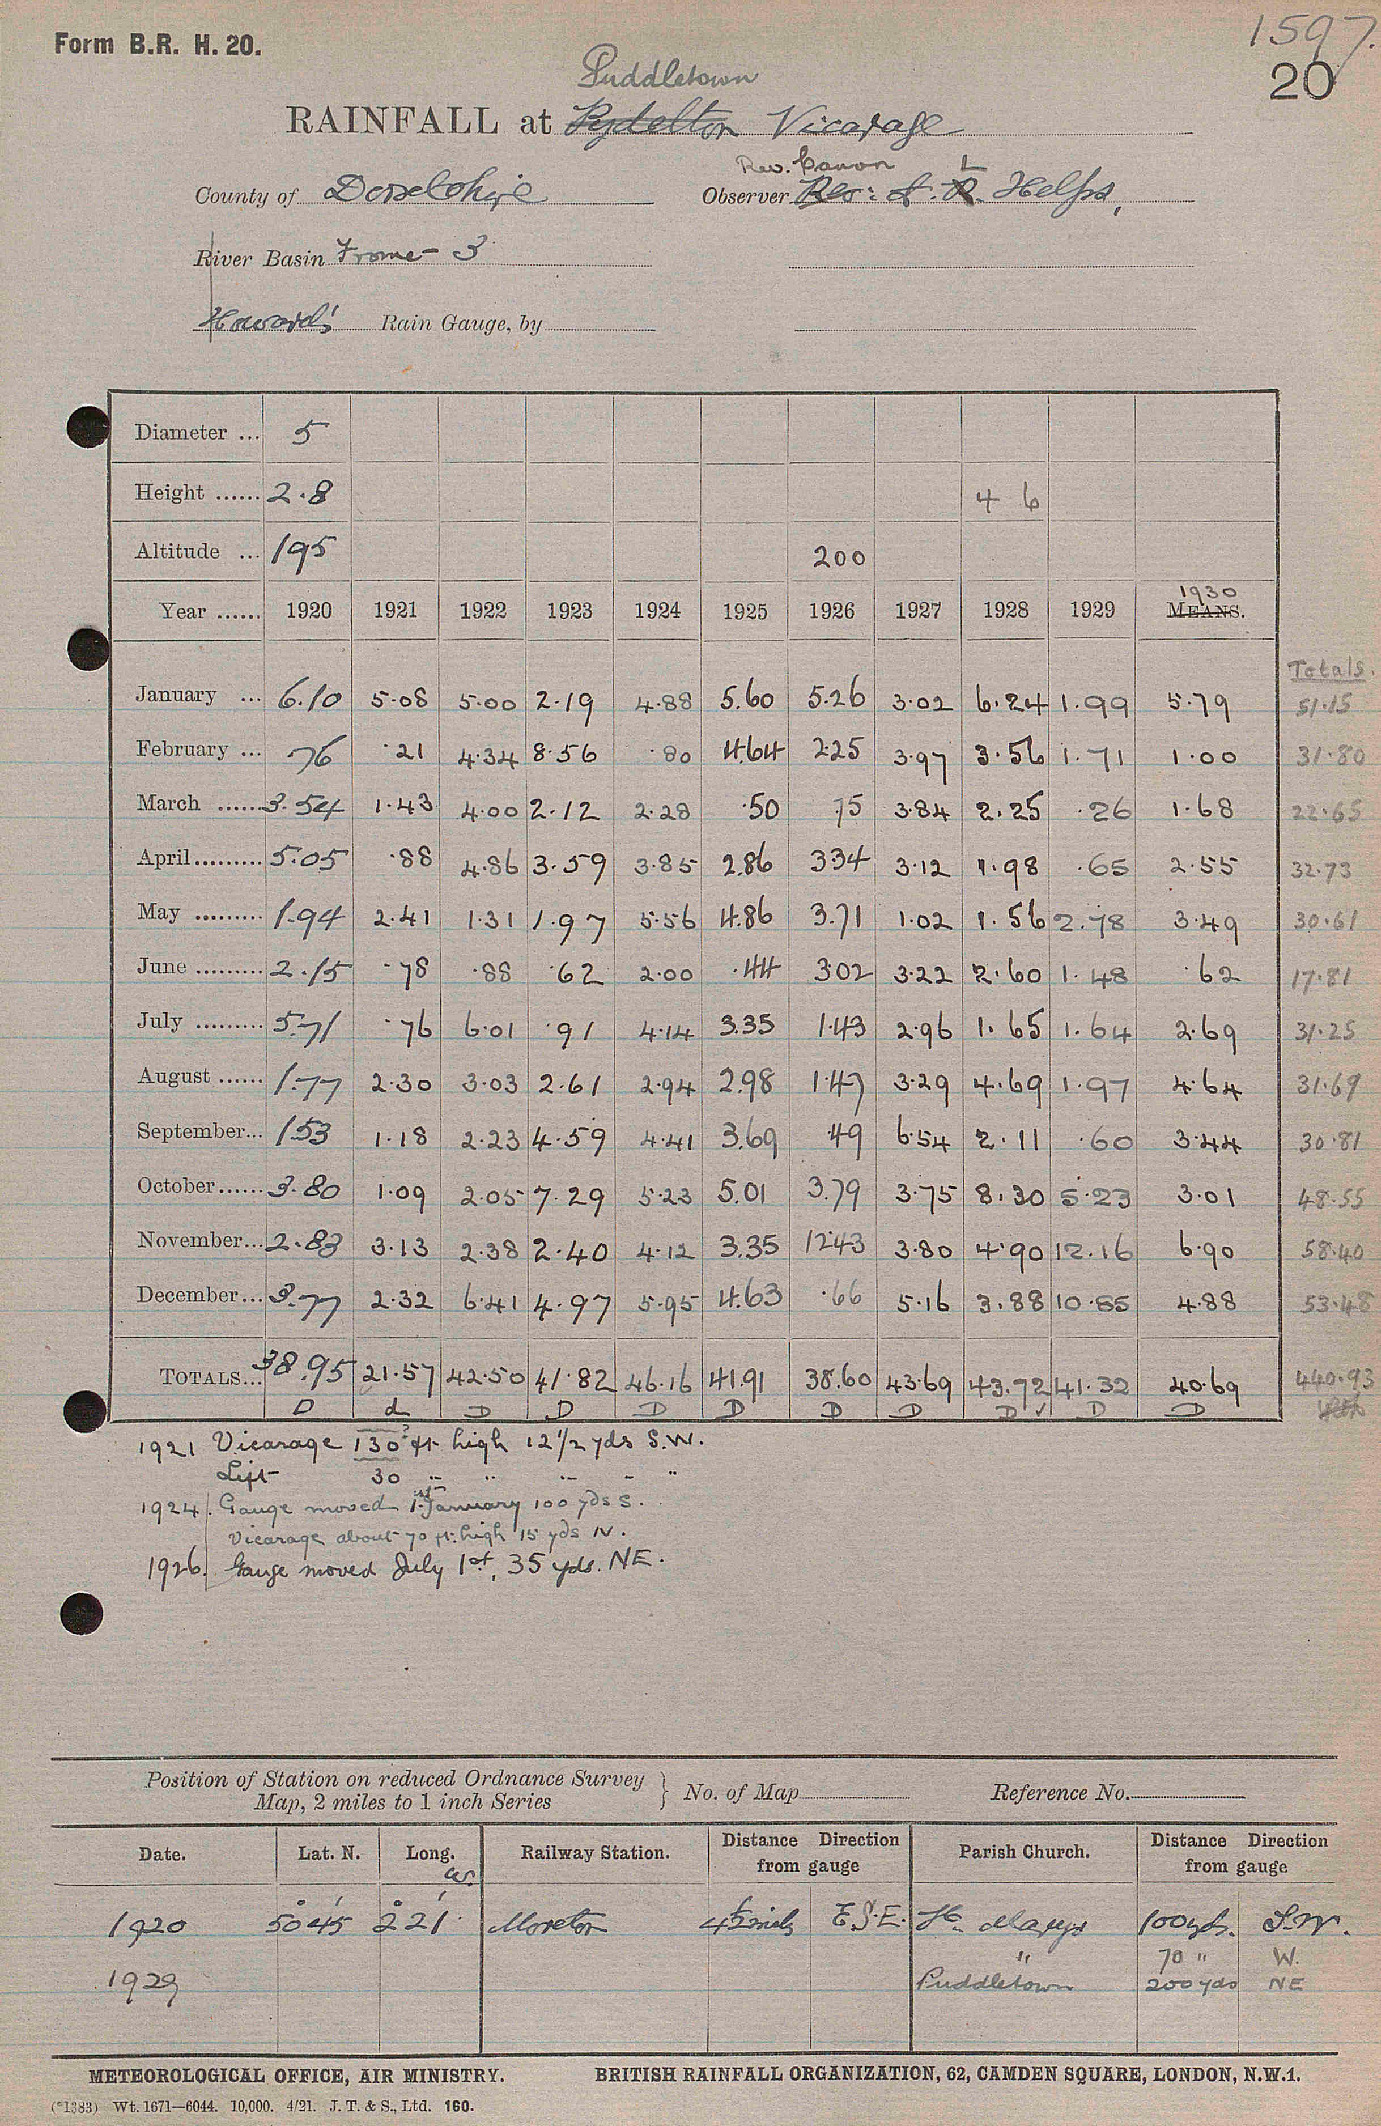 Form B.R. H. 20.
1597.
20
Puddletown
RAINFALL at Pydelton Vicarage
Rev. Canon L
County of Dorsetshire Observer Rev: A. R. Helps,
River Basin Frome 3
Howard's Rain Gauge, by
Diameter ... 5
Height ...... 2.8 4 6
Altitude ... 195 200
1930
Year ...... 1920 1921 1922 1923 1924 1925 1926 1927 1928 1929 MEANS.
Totals.
January ... 6.10 5.08 5.00 2.19 4.88 5.60 5.26 3.02 6.24 1.99 5.79 51.15
February ... 76 .21 4.34 8.56 .80 4.64 2.25 3.97 3.56 1.71 1.00 31.80
March ...... 3.54 1.43 4.00 2.12 2.28 .50 75 3.84 2.25 .26 1.68 22.65
April......... 5.05 .88 4.86 3.59 3.85 2.86 334 3.12 1.98 .65 2.55 32.73
May ......... 1.94 2.41 1.31 1.97 5.56 4.86 3.71 1.02 1.56 2.78 3.49 30.61
June ......... 2.15 .78 .88 .62 2.00 .44 302 3.22 2.60 1.48 .62 17.81
July ......... 5.71 .76 6.01 .91 4.14 3.35 1.43 2.96 1.65 1.64 2.69 31.25
August ...... 1.77 2.30 3.03 2.61 2.94 2.98 1.47 3.29 4.69 1.97 4.64 31.69
September... 1.53 1.18 2.23 4.59 4.41 3.69 .49 6.54 2.11 .60 3.44 30.81
October...... 3.80 1.09 2.05 7.29 5.23 5.01 3.79 3.75 8.30 5.23 3.01 48.55
November... 2.83 3.13 2.38 2.40 4.12 3.35 1243 3.80 4.90 12.16 6.90 58.40
December... 3.77 2.32 6.41 4.97 5.95 4.63 .66 5.16 3.88 10.85 4.88 53.48
TOTALS... 38.95 21.57 42.50 41.82 46.16 41.91 38.60 43.69 43.72 41.32 40.69 440.93
D d D D D D D D D ✓ D D
1921 Vicarage 130? ft high 12 1/2 yds S.W.
Lift 30 " " " " "
1924. Gauge moved 1st January 100 yds S.
Vicarage about 70 ft. high 15 yds N.
1926. Gauge moved July 1st, 35 yds. NE.
Position of Station on reduced Ordnance Survey Map, 2 miles to 1 inch Series } No. of Map Reference No.
Date. Lat. N. Long. W. Railway Station. Distance Direction from gauge Parish Church. Distance Direction from gauge
1920 50° 45' 2° 21' Moreton 4½ miles E.S.E. St. Marys 100 yds. S.W.
" 70 " W.
1929 Puddletown 200 yds NE
METEOROLOGICAL OFFICE, AIR MINISTRY. BRITISH RAINFALL ORGANIZATION, 62, CAMDEN SQUARE, LONDON, N.W.1.
(*1383) Wt. 1671—6044. 10,000. 4/21. J. T. & S., Ltd. 160.